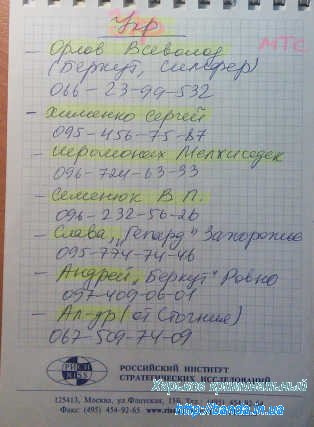 Укр
МТС
– Орлов Всеволод
(Беркут, Симфер)
066-23-99-532
– Хименко Сергей
095-456-75-87
– Иеромонах Мелхиседек
096-724-63-33
– Семенюк В.П.
096-232-56-26
– Слава, "Гепард" Запорожье
095-774-74-46
– Андрей, "Беркут" Ровно
097-409-06-01
– Ал-др (от Стогния)
067-509-74-09
РОССИЙСКИЙ ИНСТИТУТ
СТРАТЕГИЧЕСКИХ ИССЛЕДОВАНИЙ
125413, Москва, ул. Флотская,
Факс: (495) 454-92-65